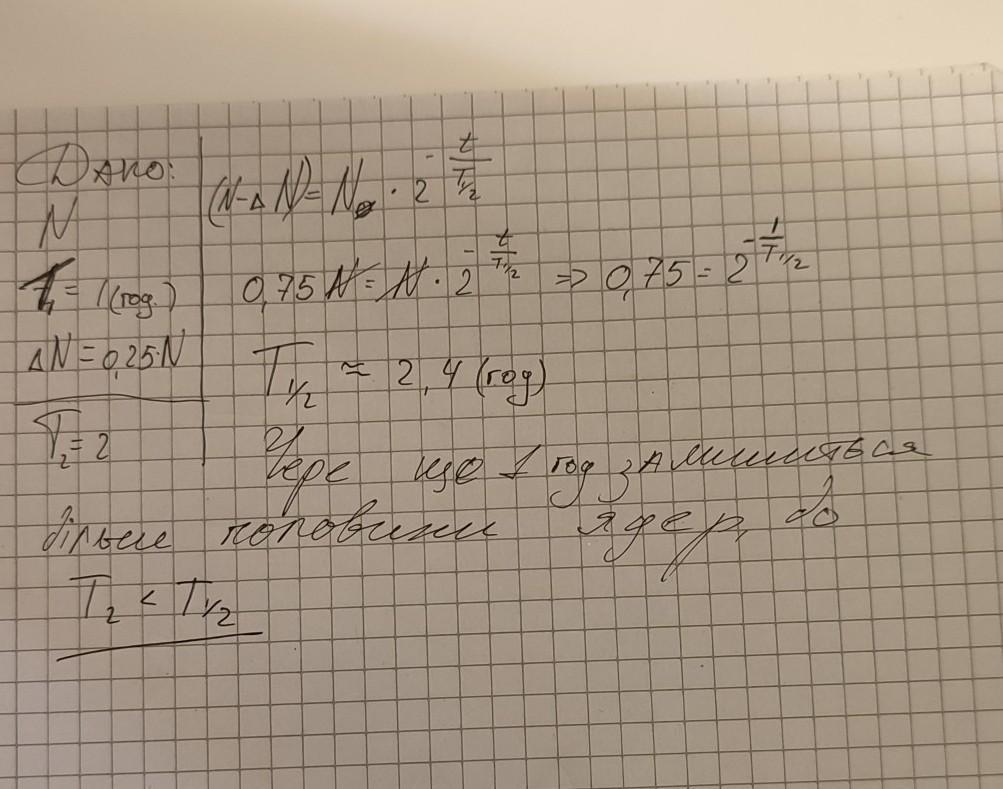 Дано:
N
T₁ = 1 (год.)
ΔN = 0,25·N
T₂ = 2
(N-ΔN) = N₀ · 2^(-t/T1/2)
0,75 N = N · 2^(-t/T1/2) => 0,75 = 2^(-1/T1/2)
T1/2 ≈ 2,4 (год)
Чере ще 1 год залишиться
більше половини ядер, бо
T₂ < T1/2